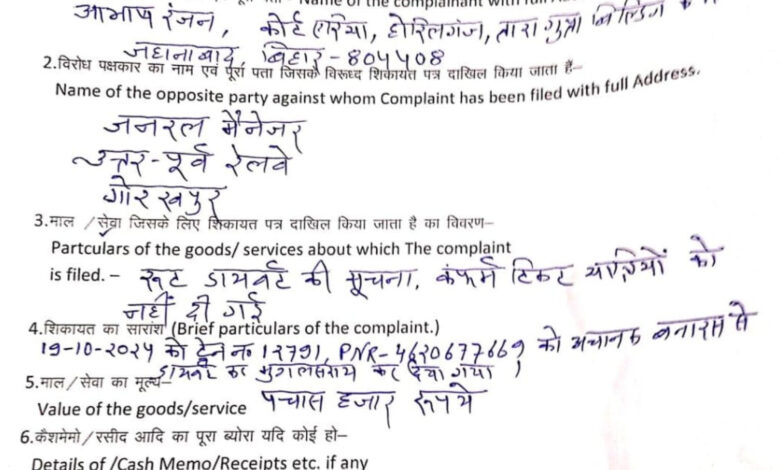 Name of the complainant with full
आभाष रंजन, कोर्ट एरिया, होरिलगंज, तारा गुप्ता बिल्डिंग के
जहानाबाद, बिहार-804408
2.विरोध पक्षकार का नाम एवं पूरा पता जिसके विरूध्द शिकायत पत्र दाखिल किया जाता है–
Name of the opposite party against whom Complaint has been filed with full Address.
जनरल मैनेजर
उत्तर-पूर्व रेलवे
गोरखपुर
3.माल /सेवा जिसके लिए शिकायत पत्र दाखिल किया जाता है का विवरण–
Partculars of the goods/ services about which The complaint
is filed. – रूट डायवर्ट की सूचना, कंफर्म टिकट यात्रियों को
नहीं दी गई
4.शिकायत का सारांश (Brief particulars of the complaint.)
19-10-2024 को ट्रेन नं० 12791, PNR-4620677669 को अचानक बनारस से
डायवर्ट कर मुगलसराय कर दिया गया।
5.माल/सेवा का मूल्य–
Value of the goods/service पचास हजार रूपये
6.कैशमेमो/रसीद आदि का पूरा ब्योरा यदि कोई हो–
Details of /Cash Memo/Receipts etc. if any